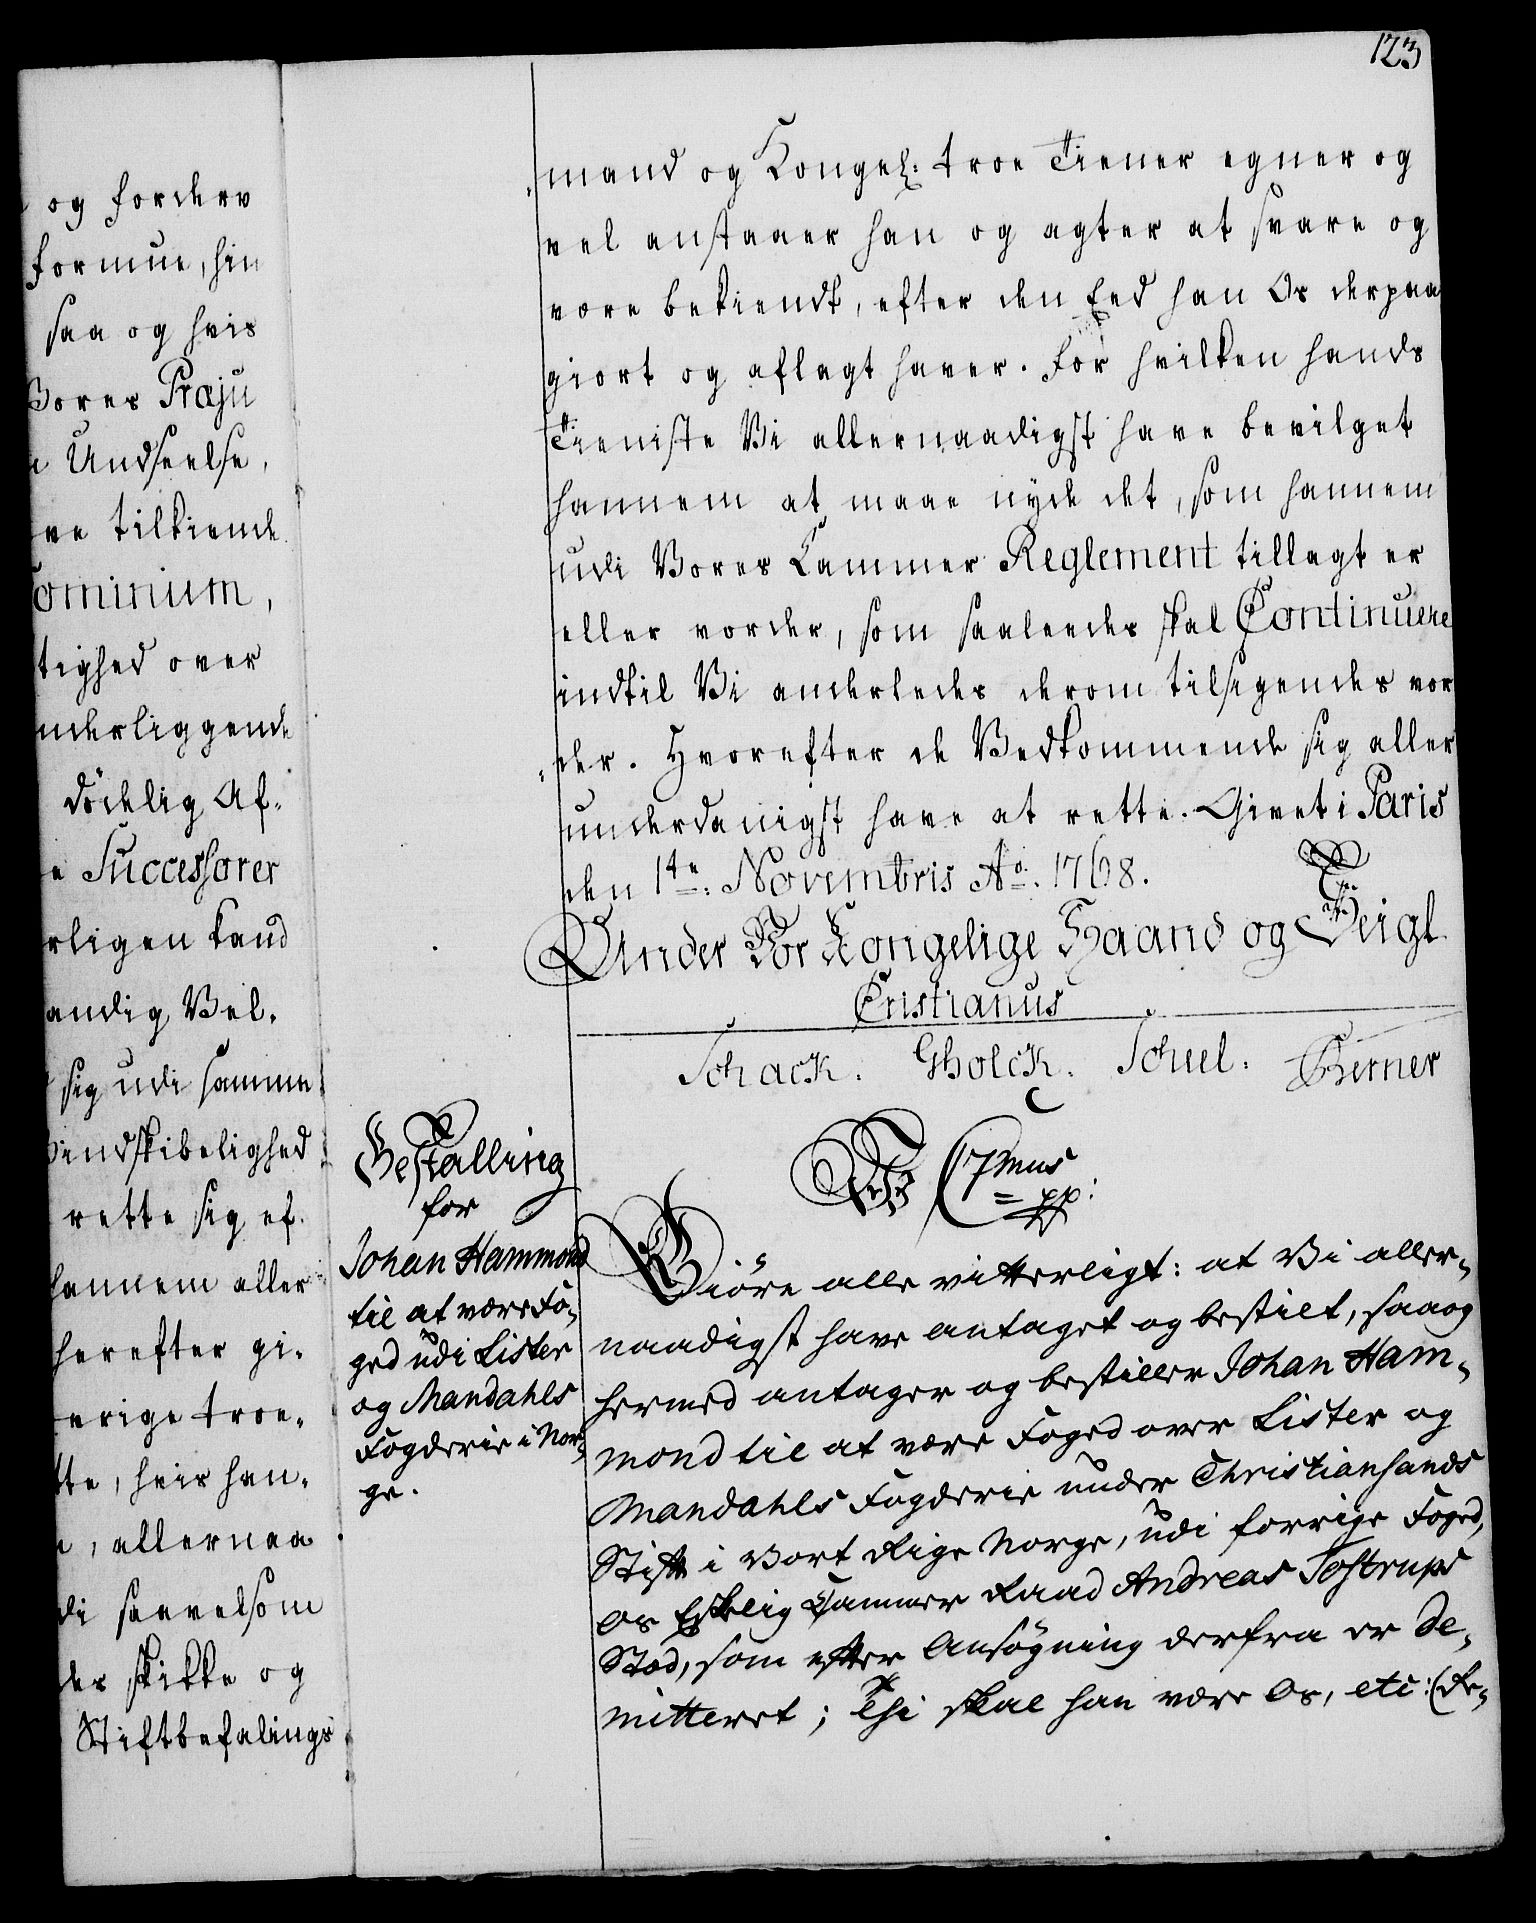 123
og forderv
formue, hin
saa og hvis
Vores Præju
Undseelse,
ve tilkiende
ominium,
tighed over
nderliggende
dödelig Af-
e Successorer
rligen kand
andig Vel-
sig udi samme
Vindskibelighed
rette sig ef-
hannem aller
herefter gi-
erige troe-
tte, hvis han-
, allernaa
di saavelsom
des skikke og
Stiftbefalings
mand og Kongel: troe Tiener egner og
vel anstaaer han og agter at svare og
være bekiendt, efter den Eed han Os derpaa
giort og aflagt haver. For hvilken hands
Tieniste Vi allernaadigst have bevilget
hannem at maae nyde det, som hannem
udi Vores Cammer Reglement tillagt er
eller vorder, som saaleedes skal Continuere
indtil Vi anderledes derom tilsigendes vor
der. Hvorefter de Vedkommende sig aller
underdanigst have at rette. Givet i Paris
den 1te: Novembris Ao: 1768.
Under Vor Kongelige Haand og Seigl
Cristianus
Schack. GHolck. Schul. Kerner
Bestalling
for
Johan Hammond
til at være Fo-
ged udi Lister
og Mandahls
Fogderie i Nor-
ge.
Wi C7mus
pp:
Giöre alle vitterligt: at Vi aller-
naadigst have antaget og bestilt, saa og
hermed antager og bestiller Johan Ham-
mond til at være Foged over Lister og
Mandahls Fogderie under Christiansands
Stift i Vort Rige Norge, udi forrige Foged,
Os Elskelig Cammer Raad Andreas Tostrups
Stæd, som efter Ansögning derfra er De-
mitteret; Thi skal han være Os, etc: (Re-